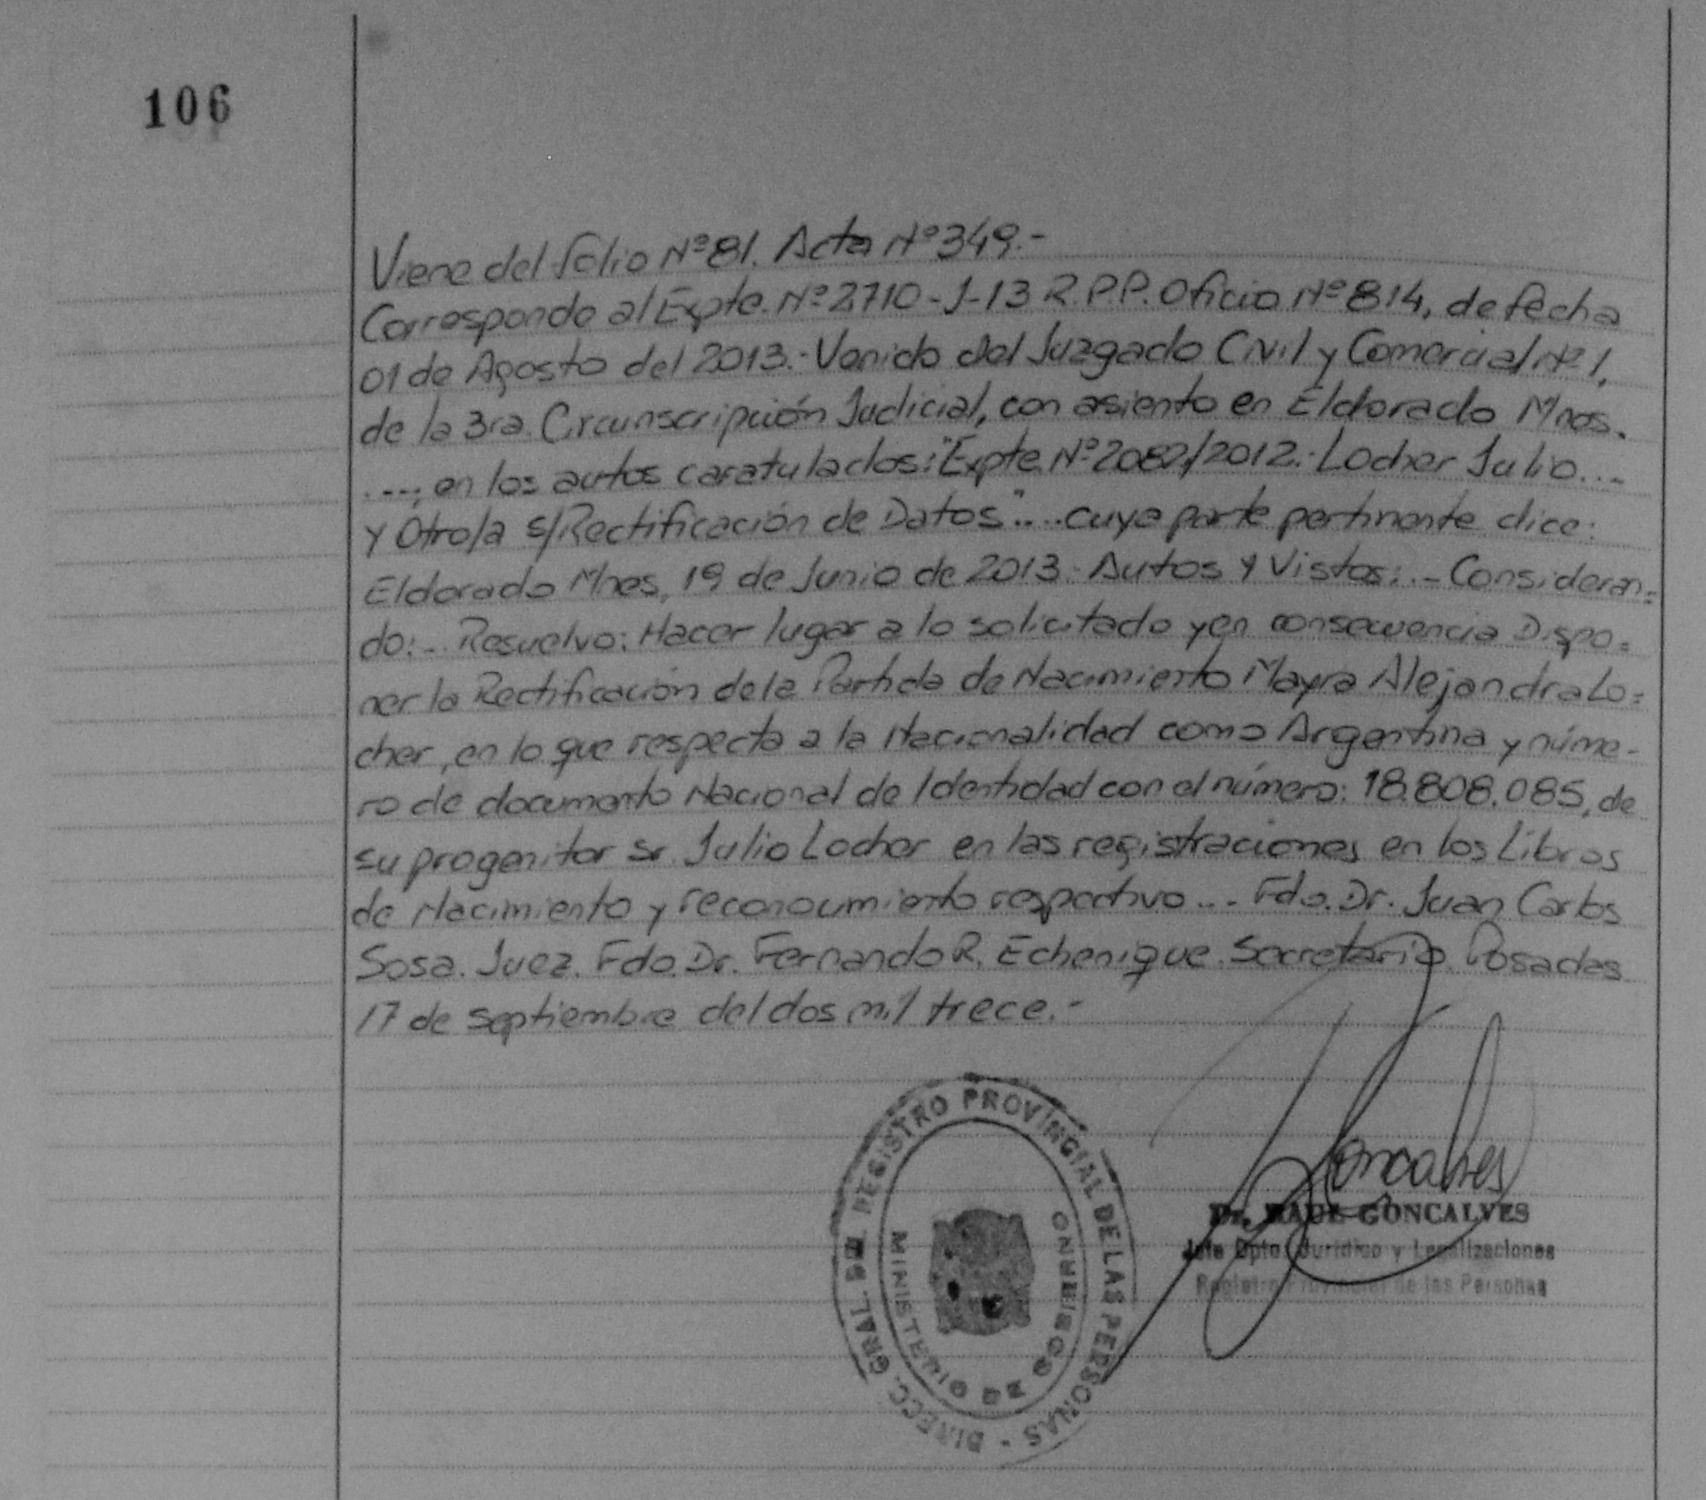 106
Viene del folio Nº81. Acta Nº349.-
Corresponde al Expte. Nº2710-J-13 R.P.P. Oficio Nº814, de fecha
01 de Agosto del 2013.- Venido del Juzgado Civil y Comercial Nº1,
de la 3ra. Circunscripción Judicial, con asiento en Eldorado Mnes.
...; en los autos caratulados: "Expte. Nº2082/2012.- Locher Julio...
y Otro/a s/Rectificación de Datos"... cuya parte pertinente dice:
Eldorado Mnes, 19 de Junio de 2013.- Autos y Vistos:.- Consideran=
do:.- Resuelvo: Hacer lugar a lo solicitado y en consecuencia Dispo=
ner la Rectificación de la Partida de Nacimiento Mayra Alejandra Lo=
cher, en lo que respecta a la Nacionalidad como Argentina y núme-
ro de documento Nacional de Identidad con el número: 18.808.085, de
su progenitor Sr. Julio Locher en las registraciones en los Libros
de Nacimiento y reconocimiento respectivo... Fdo. Dr. Juan Carlos
Sosa. Juez. Fdo. Dr. Fernando R. Echenique. Secretario. Posadas
17 de septiembre del dos mil trece.-
DIRECC. GRAL. DEL REGISTRO PROVINCIAL DE LAS PERSONAS -
MINISTERIO DE GOBIERNO
Goncalves
Dr. RAUL GONCALVES
Jefe Dpto. Jurídico y Legalizaciones
Registro Provincial de las Personas